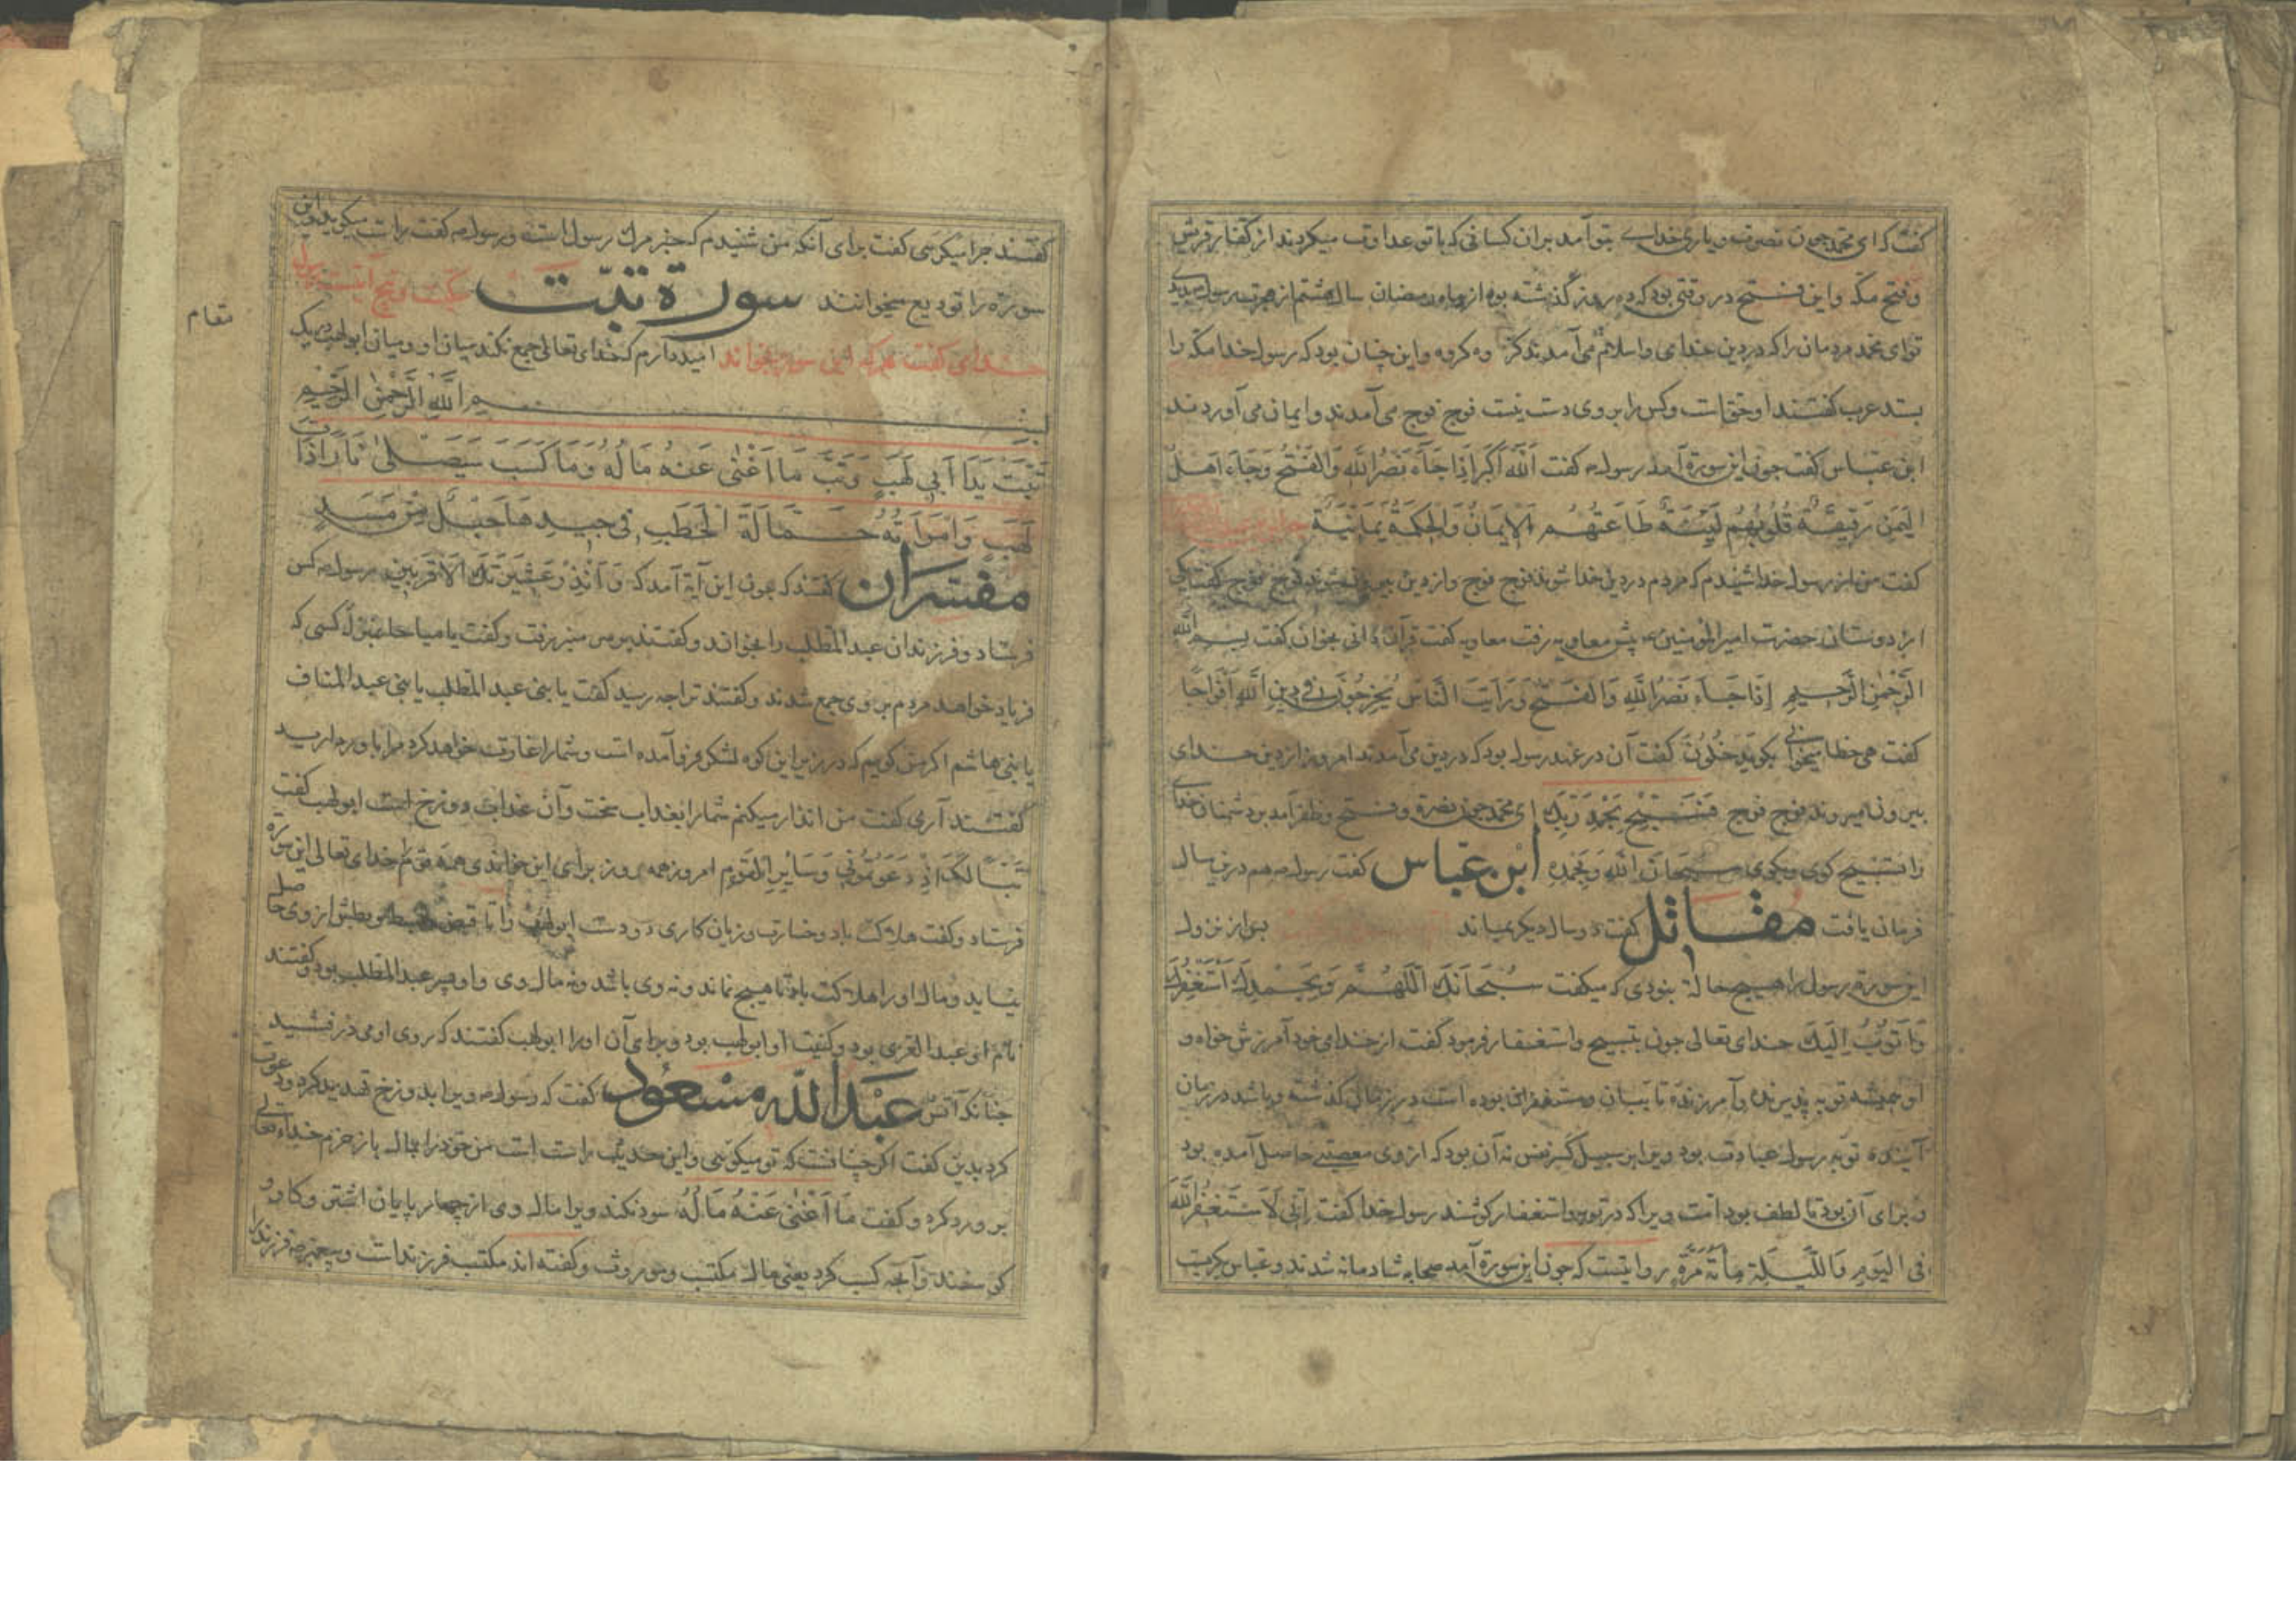 گفت که ای محمد چون نصرت و یاری خدای بتو آمد بران کسانی که با تو عداوت میکردند از کفار قریش
و فتح مکه و این فتح در وقتی بود که ده روز گذشته بود از ماه رمضان سال هشتم از هجرت رسول
توای محمد مردمان را که در دین خدای و اسلام می آمدند کروه کروه و این چنان بود که رسول خدا مکه را
بستد عرب گفتند او حق است و کس را بر وی دست نیست فوج فوج می آمدند و ایمان می آوردند
ابن عباس گفت چون این سورة آمد رسول گفت اَللّٰهُ اَکْبَر اِذَا جَآءَ نَصْرُ اللّٰهِ وَالْفَتْحُ وَجَآءَ اَهْلُ
الْیَمَن رَقِیقَةٌ قُلُوبُهُم لَیِّنَةٌ طَاعَتُهُم الْاِیمَانُ وَالْحِکْمَةُ یَمَانِیَةٌ
گفت من از رسول خدا شنیدم که مردم در دین خدا شوند فوج فوج و از دین بیرون شوند فوج فوج گفت یکی
از دوستان حضرت امیر المومنین پیش معاویه رفت معاویه گفت قرآن دانی بخوان گفت بسم الله
الرَّحْمٰنِ الرَّحِیمِ اِذَا جَآءَ نَصْرُ اللّٰهِ وَالْفَتْحُ وَرَاَیْتَ النَّاسَ یَخْرُجُونَ فِی دِینِ اللّٰهِ اَفْوَاجًا
گفت هی خطا میخوانی بکوید خُلُونَ گفت آن در عهد رسول بود که در دین می آمدند امروز از دین خدای
بیرون میروند فوج فوج فَسَبِّحْ بِحَمْدِ رَبِّکَ ای محمد چون نصرة و فتح و ظفر آمد بر دشمنان خدای
را تسبیح کوی و بکوی سبحان الله و بحمده ابن عباس گفت رسول هم درین سال
فرمان یافت مقاتل گفت دو سال دیکر بماند پس از نزول
این سورة رسول را هیچ حالة نبودی که میگفت سُبْحَانَکَ اَللّٰهُمَّ وَبِحَمْدِکَ اَسْتَغْفِرُکَ
وَاَتُوبُ اِلَیْکَ خدای تعالی چون بتسبیح و استغفار فرمود گفت از خدای خود آمرزش خواه و
او همیشه توبه پذیرنده و آمرزنده تایبان و مستغفران بوده است در زمان گذشته و باشد در زمان
آینده توبه رسول عبادت بود و بر این سبیل نه آن بود که از وی معصیتی حاصل آمده بود
و برای آن بود تا لطف بود امت ویرا که در توبه و استغفار کوشند رسول خدا گفت اِنِّی لَاَسْتَغْفِرُ اللّٰهَ
فِی الْیَوْمِ وَاللَّیْلَةِ مِائَةَ مَرَّةٍ روایتست که چون این سورة آمد صحابه شادمانه شدند و عباس بکریست
گفتند چرا میکرئی گفت برای آنکه من شنیدم که خبر مرک رسول است و رسول گفت راست میکوید و این
سورة را تودیع میخوانند سورة تبّت
خدای گفت هر که این سوره بخواند امید دارم که خدای تعالی جمع نکند میان او و میان ابو لهب در یک
مقام
بسم الله الرحمن الرحیم
تَبَّتْ یَدَا اَبِی لَهَبٍ وَتَبَّ مَا اَغْنٰی عَنْهُ مَالُهُ وَمَا کَسَبَ سَیَصْلٰی نَارًا ذَاتَ
لَهَبٍ وَامْرَاَتُهُ حَمَّالَةَ الْحَطَبِ فِی جِیدِهَا حَبْلٌ مِنْ مَسَدٍ
مفسران گفتند که چون این آیة آمد که وَاَنْذِرْ عَشِیرَتَکَ الْاَقْرَبِینَ رسول کس
فرستاد و فرزندان عبد المطلب را بخواند و گفتند بر سر منبر رفت و گفت یا صباحا بمنزله کسی که
فریاد خواهد مردم بر وی جمع شدند و گفتند ترا چه رسید گفت یا بنی عبد المطلب یا بنی عبد المناف
یا بنی هاشم اکر من کویم که در زیر این کوه لشکر فرو آمده است و شما را غارت خواهد کرد مرا باور دارید
گفتند آری گفت من انذار میکنم شما را بعذاب سخت وآن عذاب دوزخ است ابو لهب گفت
تَبًّا لَکَ اَ لِهٰذَا دَعَوْتُونِی وَسَایِرِ الْقَوْمِ امروز همه روز برای این خواندی همه قوم را خدای تعالی این سورة
فرستاد و گفت هلاکت باد و خسارت و زیان کاری دو دست ابو لهب را تا قبض و بطش از وی حاصل
نیاید و مال او را هلاکت باد تا هیچ نماند و نه وی باشد و نه مال وی و او پسر عبد المطلب بود و گفتند
نام او عبد العزی بود و کنیت او ابو لهب بود و برای آن او را ابو لهب گفتند که روی او می درفشید
چنانک آتش عبد الله مسعود گفت که رسول ویرا بدوزخ تهدید کرد و دعوت
کرد بدین گفت اکر چنانست که تو میکوئی و این حدیث راست است من خود را بمال باز خرم خدای تعالی
بر و رد کرد و گفت مَا اَغْنٰی عَنْهُ مَالُهُ سود نکند ویرا مال وی از چهار پایان اشتر و کاو و
کوسفند و آنچه کسب کرد یعنی مال مکتب و موروث و گفته اند مکتسب فرزنداست و پیغمبر فرزند را